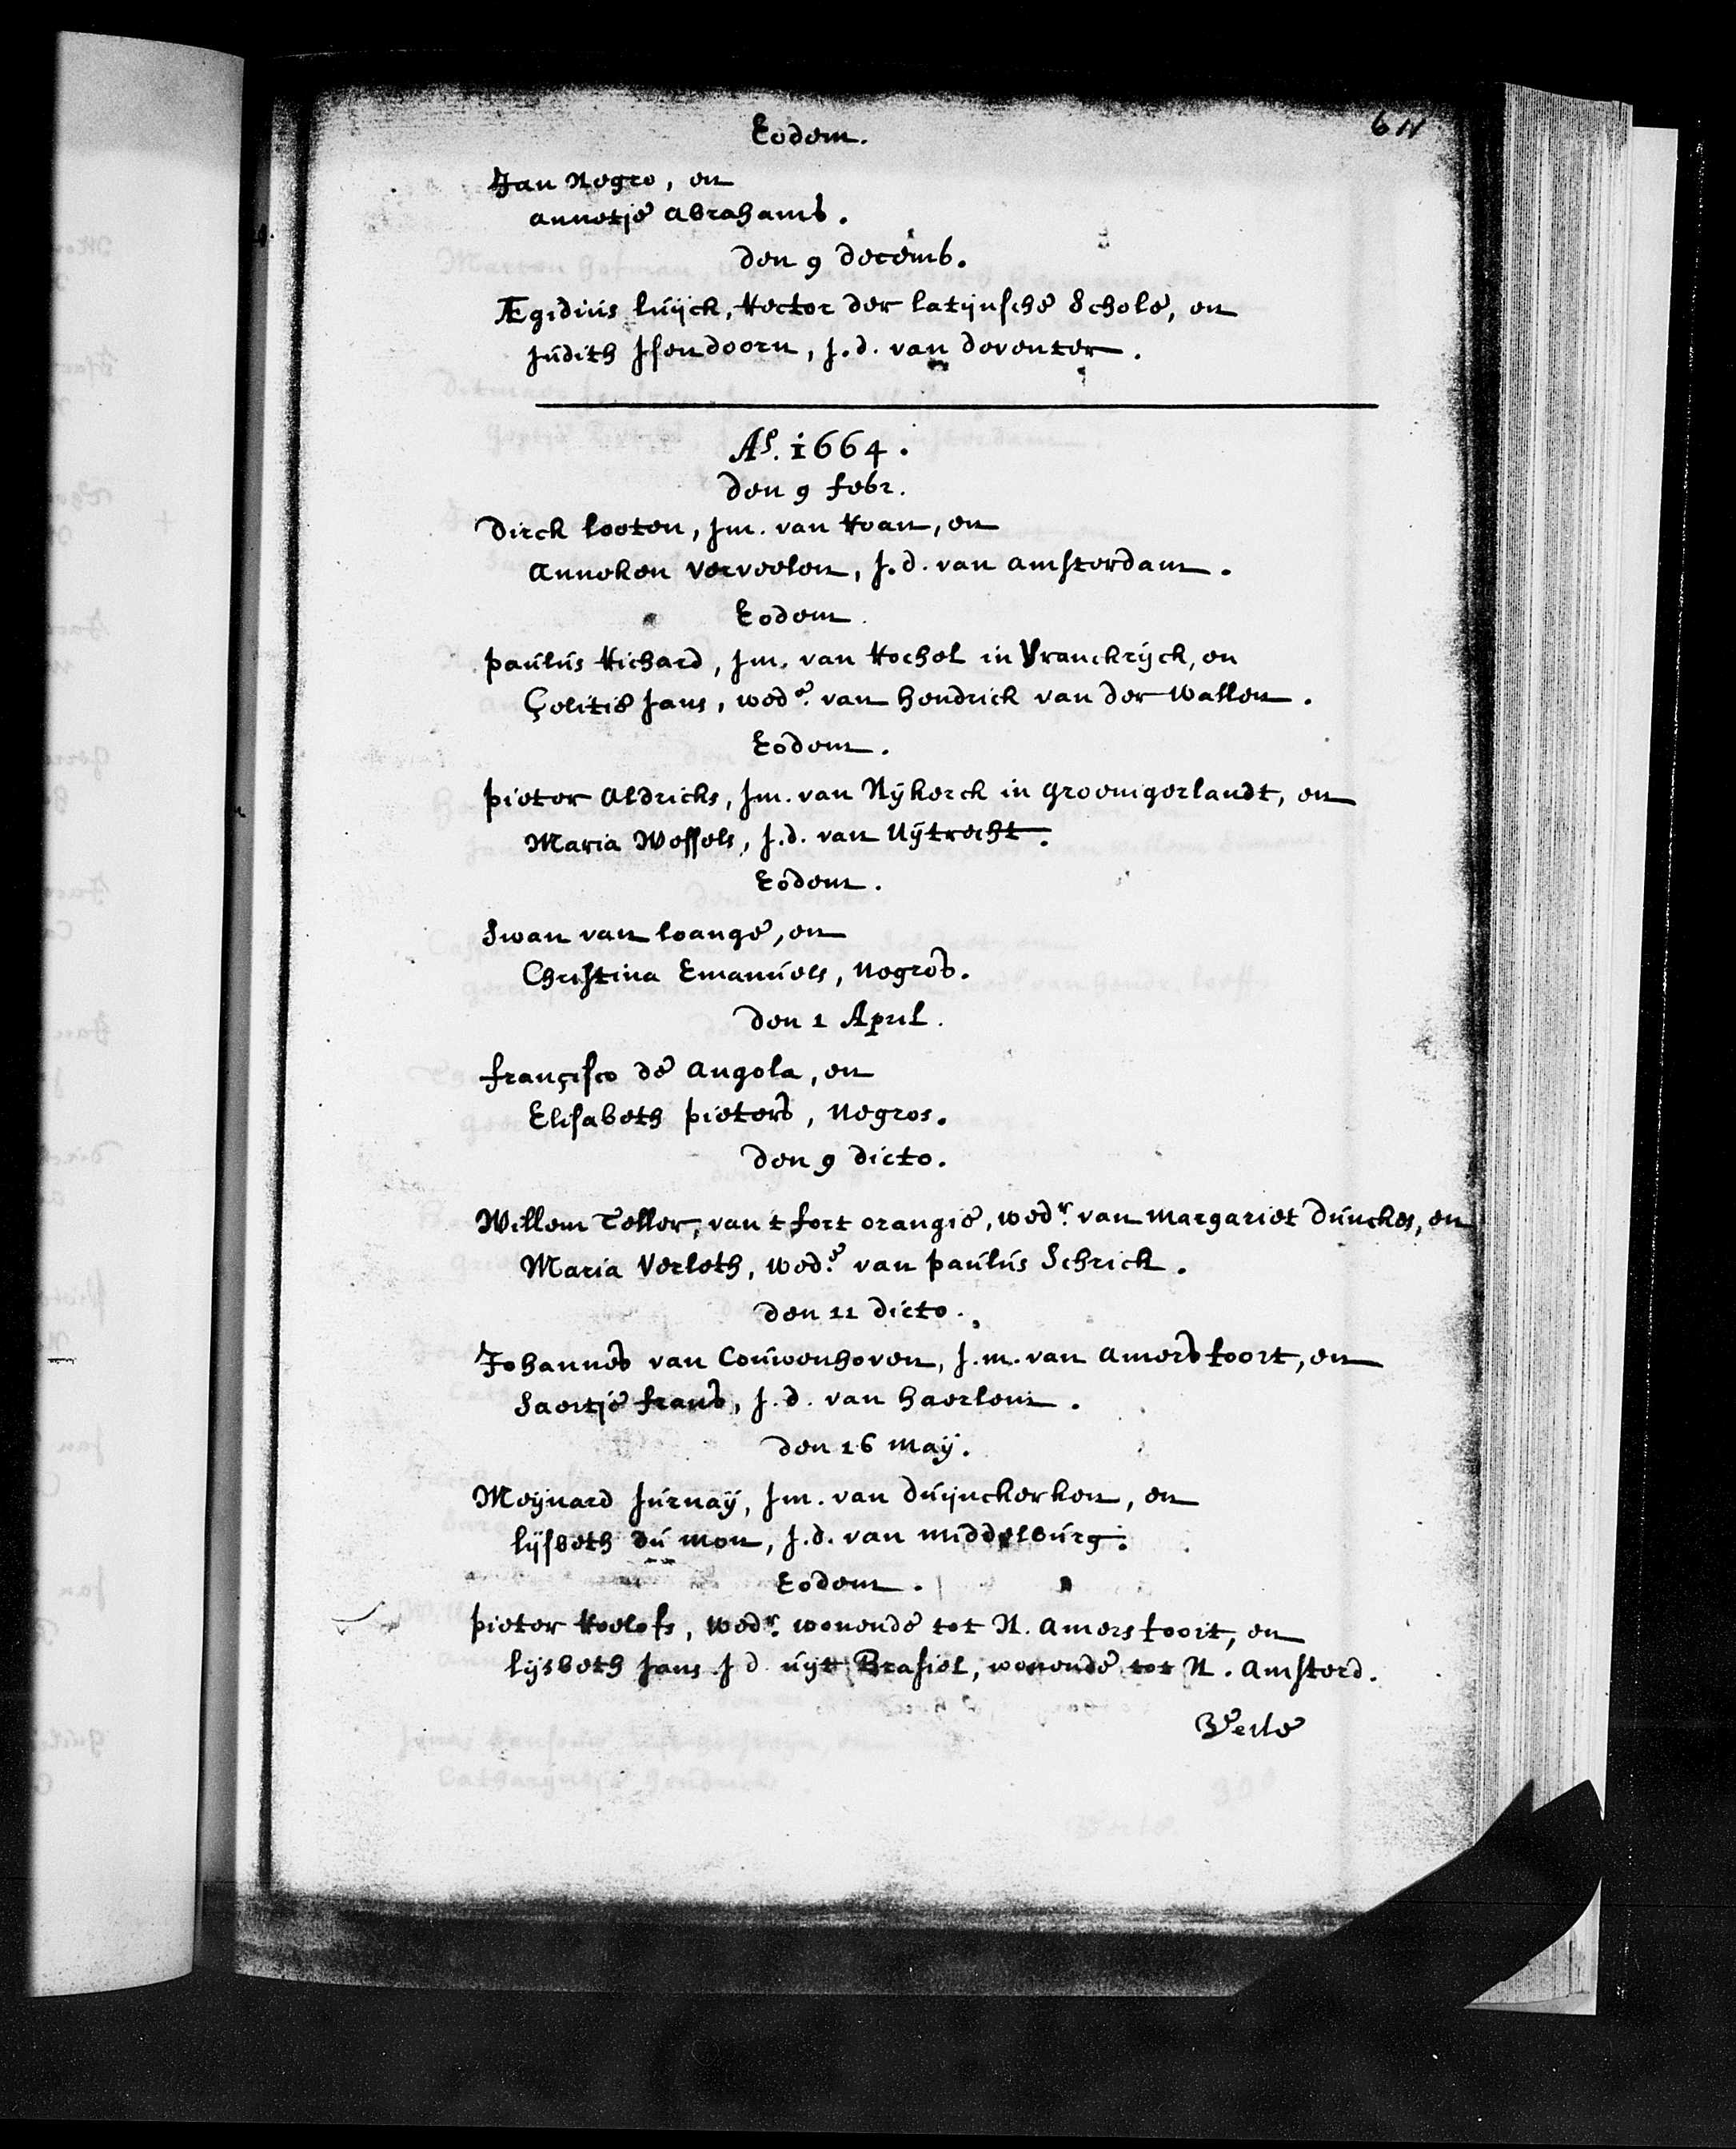 611
Eodem.
Jan Negro, en
Annetje Abrahams.
den 9 Decemb.
Ægidius Luyck, Rector der latynsche Schole, en
Judith Isendoorn, J.d. van Deventer.
Aº. 1664.
den 9 Febr.
Dirck Looten, Jm. van Roan, en
Anneken Verveelen, J.d. van Amsterdam.
Eodem.
Paulus Richard, Jm. van Rochel in Vranckryck, en
Çelitie Jans, wed.ᵉ van Hendrick van der Wallen.
Eodem.
Pieter Aldrichs, Jm. van Nykerck in Groenigerlandt, en
Maria Wessels, J.d. van Uytrecht.
Eodem.
Swan van Loange, en
Christina Emanuels, Negros.
den 1 April.
Françisco de Angola, en
Elisabeth Pieters, Negros.
den 9 dicto.
Willem Teller, van t fort Orangie, wedʳ. van Margariet Dunches, en
Maria Verleth, wed.ᵉ van Paulus Schrick.
den 11 dicto.
Johannes van Couwenhoven, J.m. van Amersfoort, en
Saertje Frans, J.d. van Haerlem.
den 16 May.
Meynard Jurnay, Jm. van Duynckerken, en
Lysbeth du Mon, J.d. van Middelburg.
Eodem.
Pieter Roelofs, Wedʳ. wonende tot N. Amersfoort, en
Lysbeth Jans J d uyt Brasiel, wonende tot N. Amsterd.